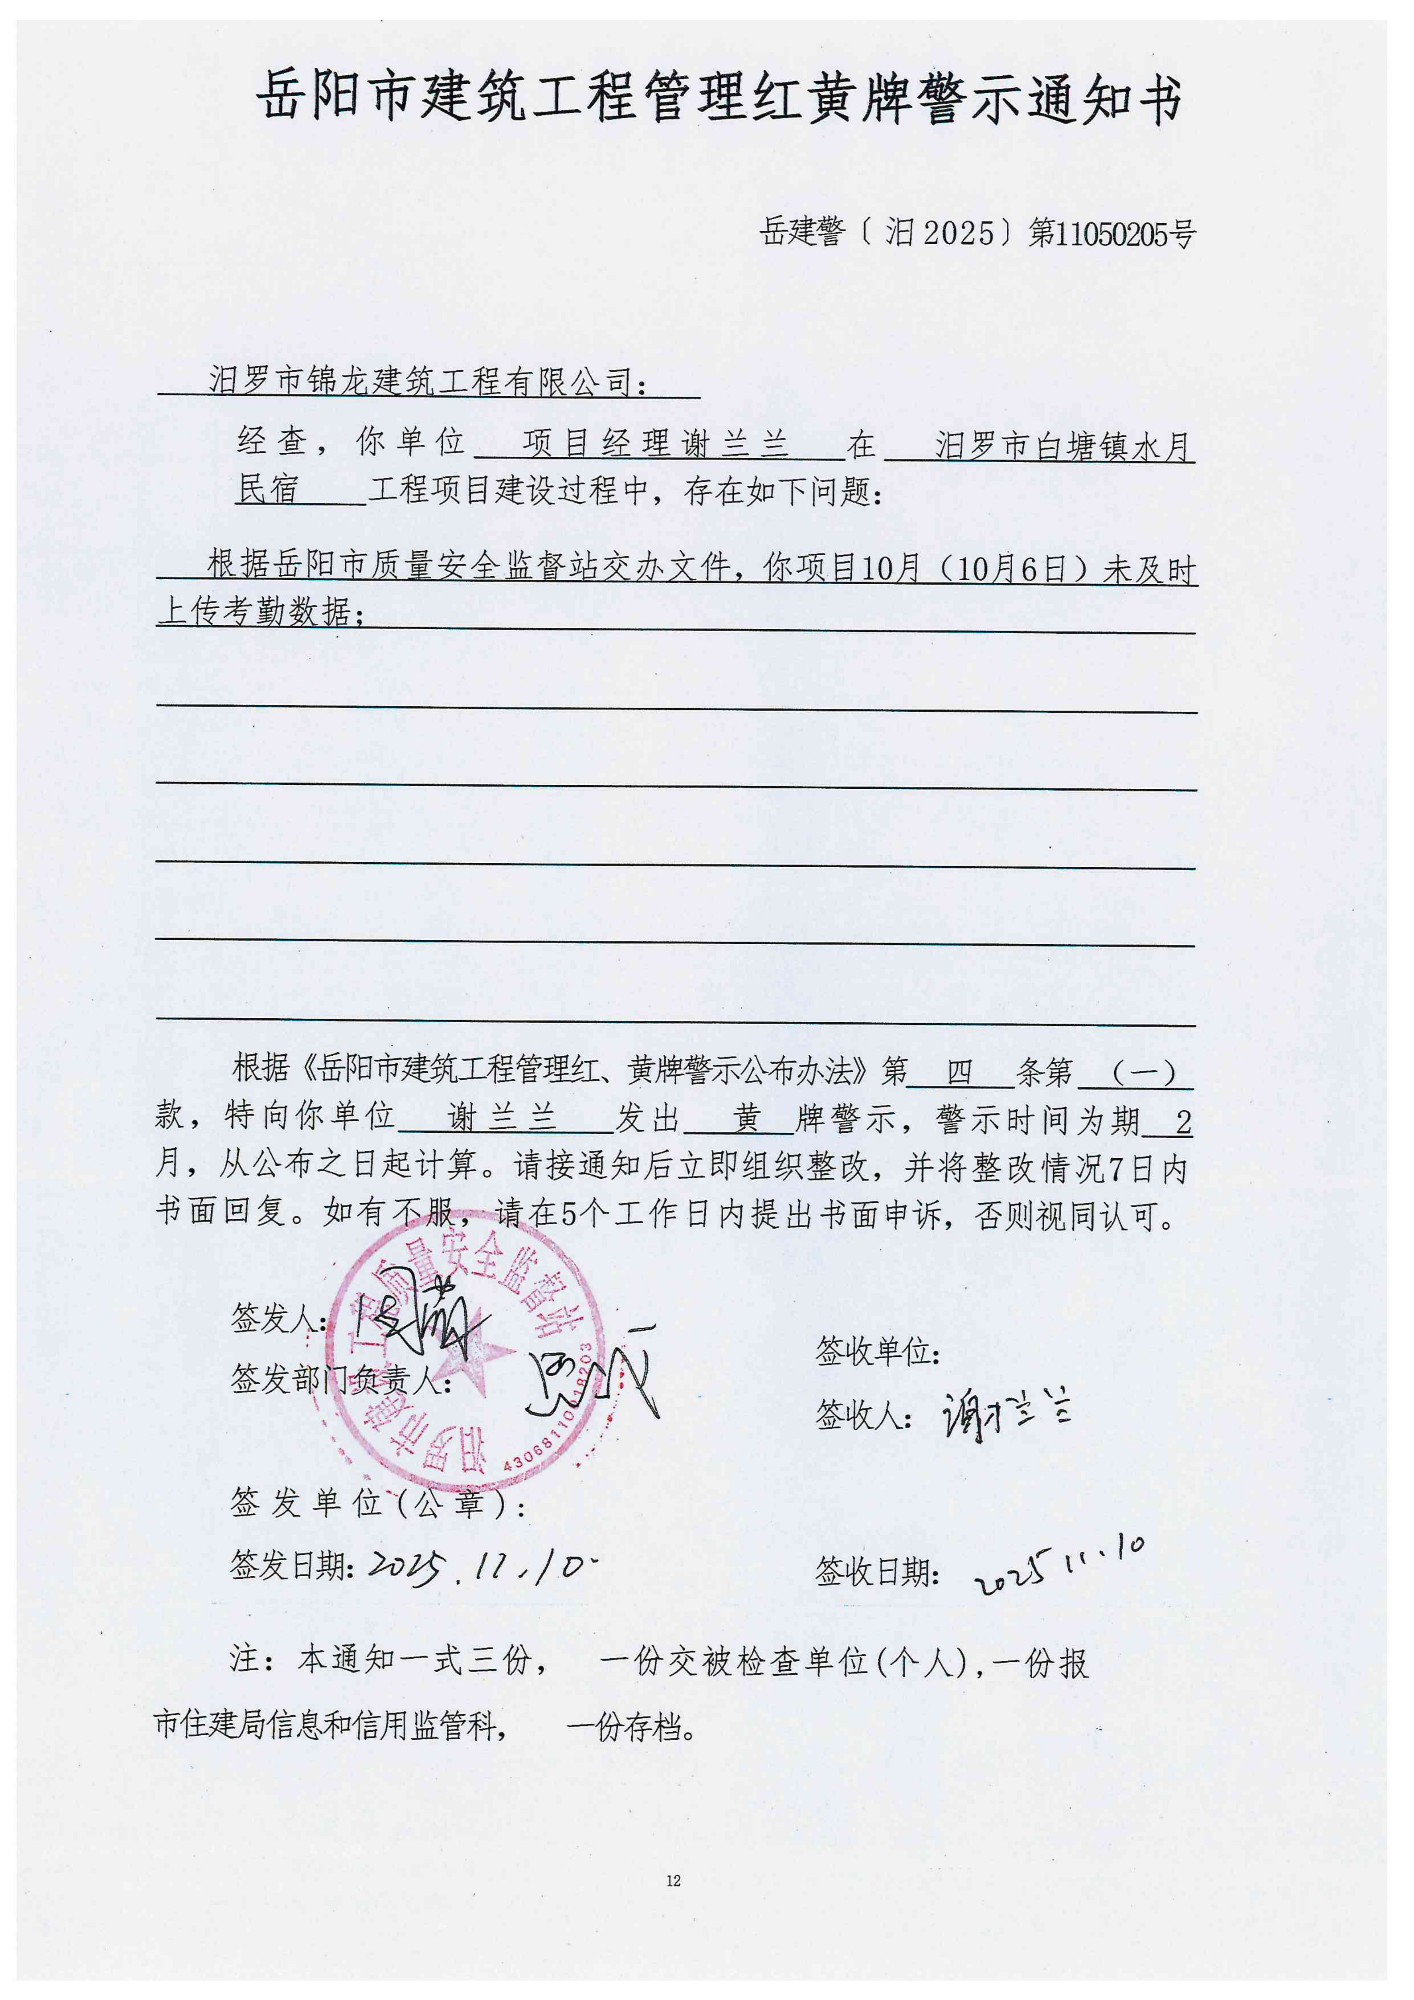 岳阳市建筑工程管理红黄牌警示通知书
岳建警〔 汨 2025〕第11050205号
汨罗市锦龙建筑工程有限公司：
经查，你单位 项目经理谢兰兰 在 汨罗市白塘镇水月
民宿 工程项目建设过程中，存在如下问题：
根据岳阳市质量安全监督站交办文件，你项目10月（10月6日）未及时
上传考勤数据；
根据《岳阳市建筑工程管理红、黄牌警示公布办法》第 四 条第 （一）
款，特向你单位 谢兰兰 发出 黄 牌警示，警示时间为期 2
月，从公布之日起计算。请接通知后立即组织整改，并将整改情况7日内
书面回复。如有不服，请在5个工作日内提出书面申诉，否则视同认可。
汨罗市建筑工程质量安全监督站
签发人：
签收单位：
签发部门负责人：
签收人：谢兰兰
签发单位（公章）：
签发日期：2025.11.10
签收日期：2025 11.10
注：本通知一式三份， 一份交被检查单位(个人)，一份报
市住建局信息和信用监管科， 一份存档。
12